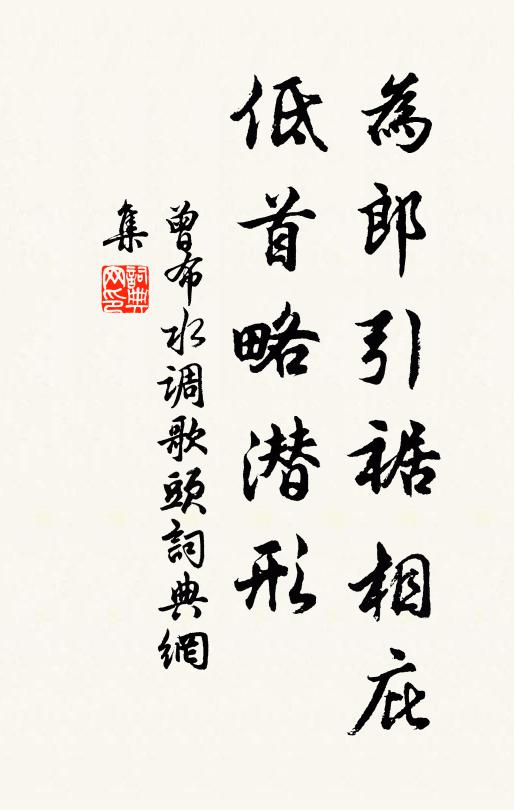 為郎引裾相庇
低首略潜形
曾布水调歌頭詞典網
集
詞典
网印